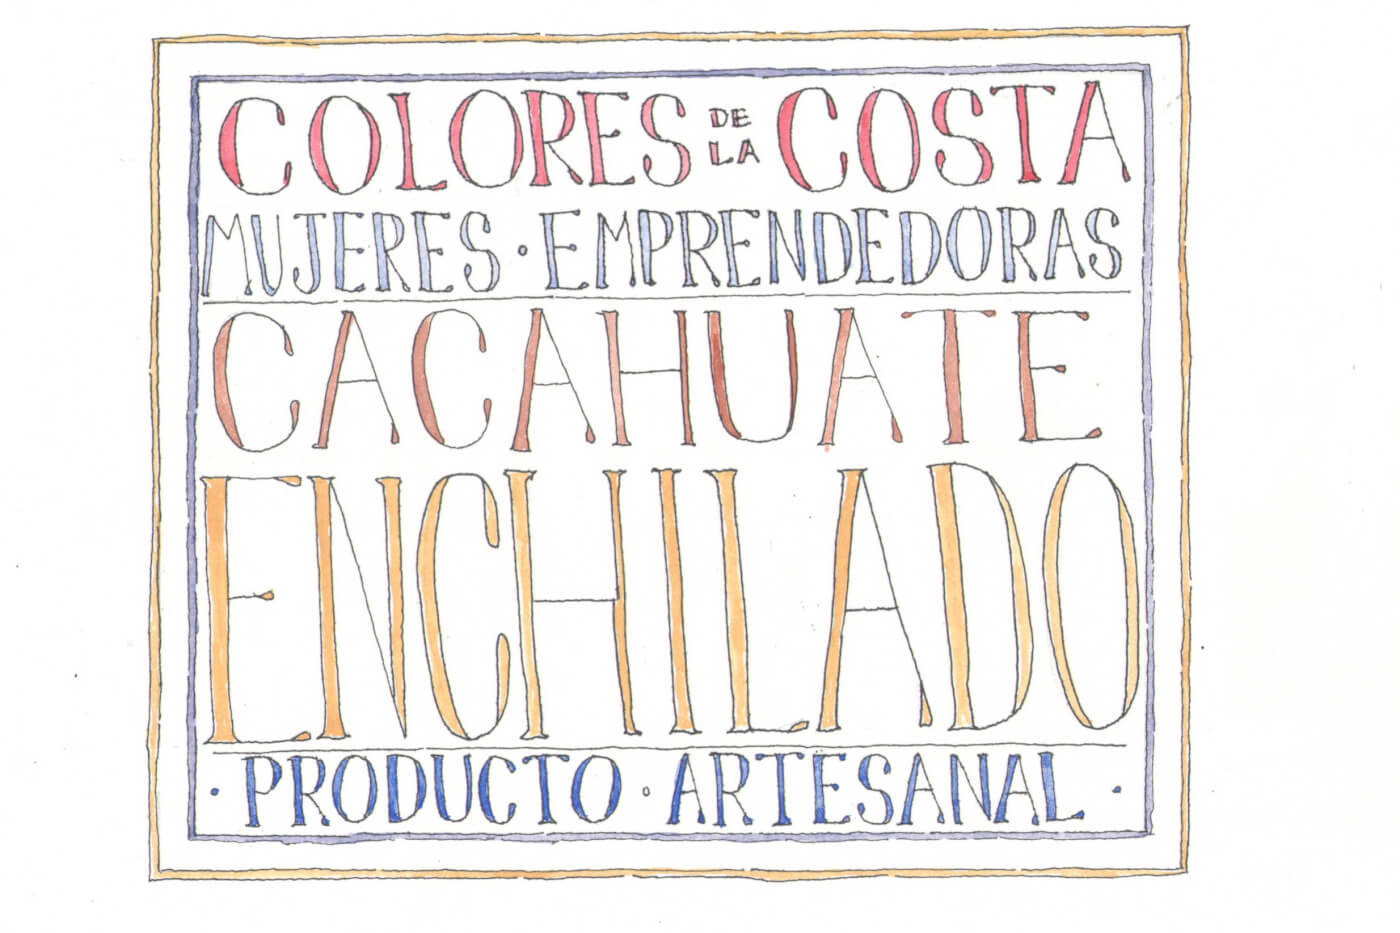 COLORES DE LA COSTA
MUJERES · EMPRENDEDORAS
CACAHUATE
ENCHILADO
· PRODUCTO · ARTESANAL ·